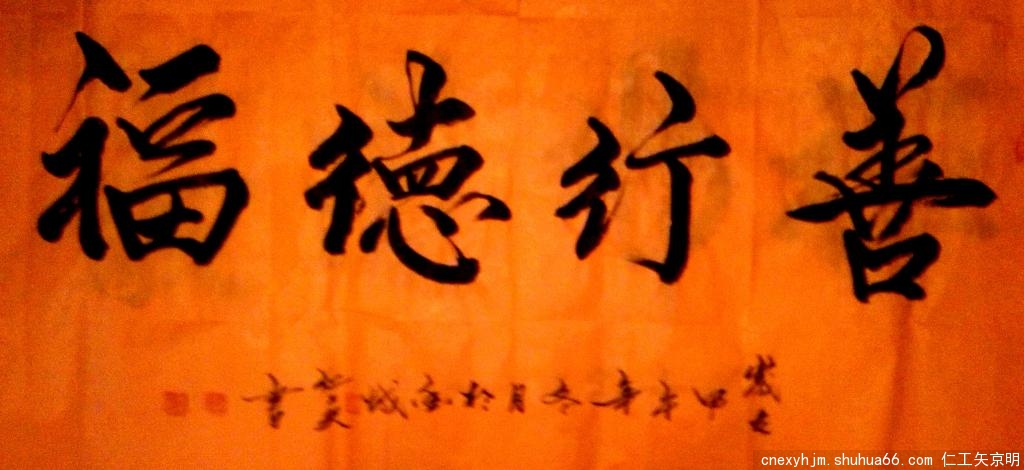 善行德福
歲在甲午年冬月於城書
cnexyhjm.shuhua66.com 仁工矢京明